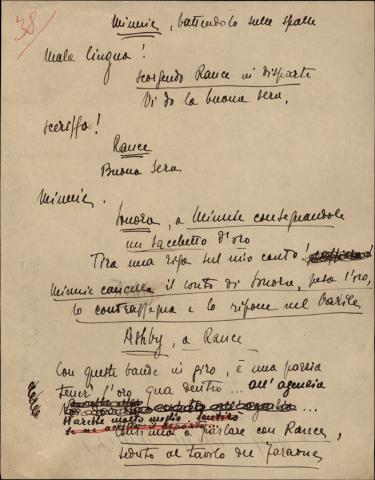 38
Minnie, battendolo sulla spalla
Mala lingua!
scorgendo Rance in disparte
Vi do la buona sera,
sceriffo!
Rance
Buona sera
Minnie.
Sonora, a Minnie consegnandole
un sacchetto d'oro
Tira una riga sul mio conto!
Minnie cancella il conto di Sonora, pesa l'oro,
lo contrassegna e lo ripone nel barile
Ashby, a Rance
Con queste bande in giro, è una pazzia
tener l'oro qua dentro... all'agenzia
...
starebbe molto meglio
continua a parlare con Rance,
seduto al tavolo del faraone